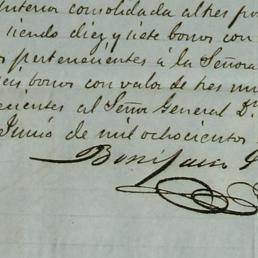 interior consolidada al tres por
siendo diez y siete bonos con
pertenecientes á la Señora
seis bonos con valor de tres mil
al Señor General Dn
Junio de mil ochocientos
Bonifacio